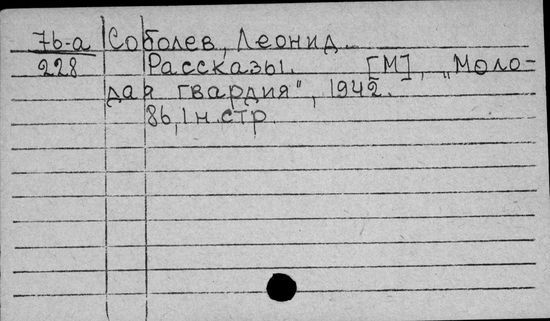 7б-а Соболев, Леонид.
228 Рассказы. [М], „Моло-
дая гвардия", 1942.
86, 1 н. стр